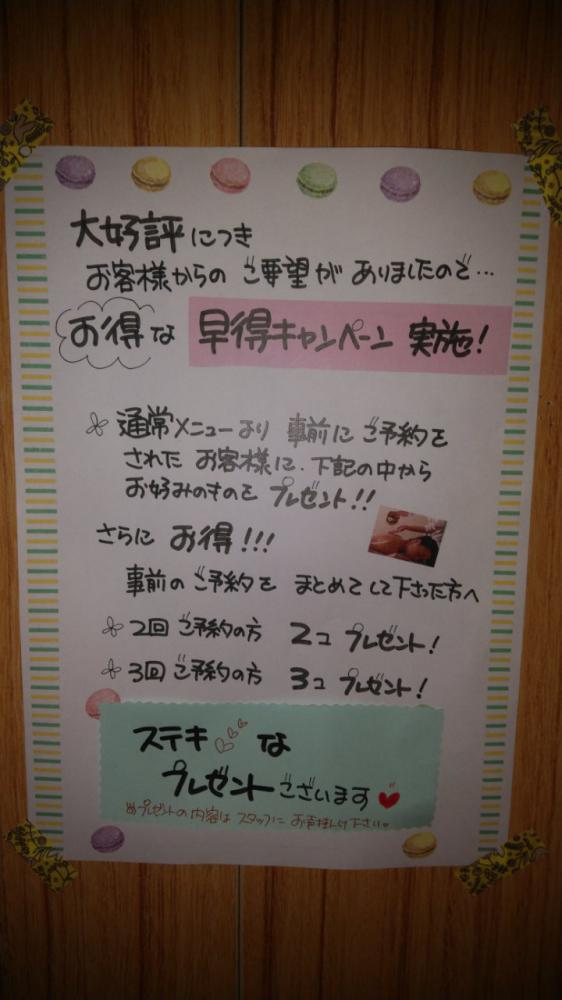 大好評につき
お客様からの ご要望が ありましたので…
お得な 早得キャンペーン 実施!
通常メニューより 事前に ご予約を
された お客様に、下記の中から
お好みのものを プレゼント!!
さらに お得!!!
事前の ご予約を まとめて して下さった方へ
2回 ご予約の方 2コ プレゼント!
3回 ご予約の方 3コ プレゼント!
ステキ な
プレゼントございます
※プレゼントの内容は スタッフに お声掛け下さい